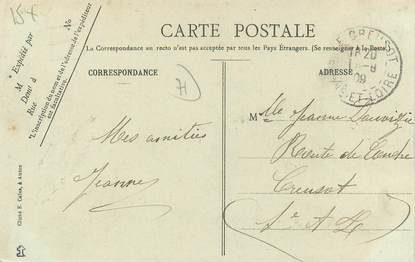 CARTE POSTALE
La Correspondance au recto n'est pas acceptée par tous les Pays Étrangers. (Se renseigner à la Poste)
M
Expédié par
Dem' à
Rue
*L'inscription du nom et de l'adresse de l'expéditeur
est facultative.
CORRESPONDANCE
ADRESSE
LE CREUSOT
18 20
09
ET-LOIRE
H
Mes amitiés
Jeanne
Mlle Jeanne
Route de
Creusot
S. et L.
Cliché E. Cailot, à Autun